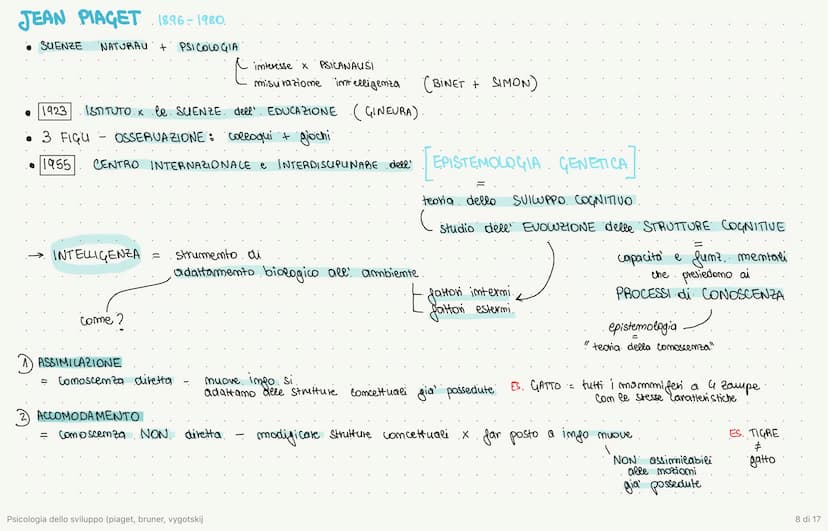 JEAN PIAGET 1896-1980
• SCIENZE NATURALI + PSICOLOGIA
interesse x PSICANALISI
misurazione intelligenza (BINET + SIMON)
• 1923 ISTITUTO x le SCIENZE dell' EDUCAZIONE (GINEVRA)
• 3 FIGLI - OSSERVAZIONE: colloqui + giochi
• 1955 CENTRO INTERNAZIONALE e INTERDISCIPLINARE dell' [EPISTEMOLOGIA GENETICA]
=
teoria dello SVILUPPO COGNITIVO
studio dell' EVOLUZIONE delle STRUTTURE COGNITIVE
→ INTELLIGENZA = strumento di
adattamento biologico all' ambiente
fattori interni
fattori esterni
=
capacità e funz. mentali
che presiedono ai
PROCESSI di CONOSCENZA
come?
epistemologia
"teoria della conoscenza"
1) ASSIMILAZIONE
= conoscenza diretta - nuove info si
adattano delle strutture concettuali già possedute ES. GATTO = tutti i mammiferi a 4 zampe
con le stesse caratteristiche
2) ACCOMODAMENTO
= conoscenza NON diretta - modificare strutture concettuali x far posto a info nuove
ES. TIGRE
≠
gatto
NON assimilabili
alle nozioni
già possedute
Psicologia dello sviluppo (piaget, bruner, vygotskij
8 di 17